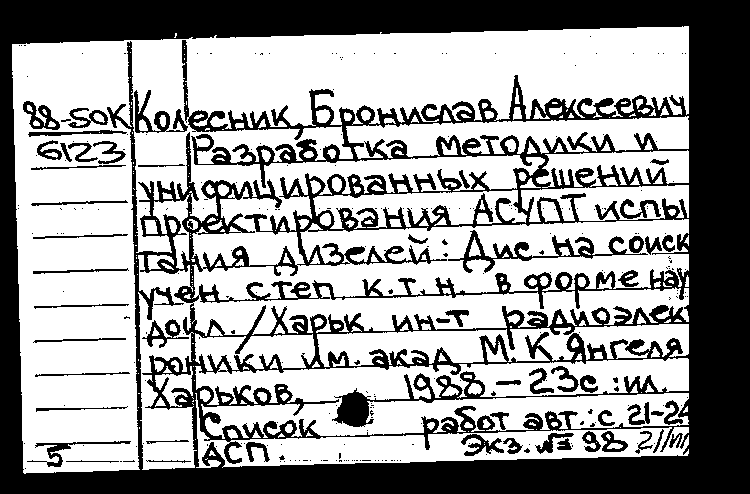 88-50К Колесник, Бронислав Алексеевич
6123 Разработка методики и
унифицированных решений
проектирования АСУПТ испы
тания дизелей: Дис. на соиск
учен. степ. к.т.н. в форме науч
докл. / Харьк. ин-т радиоэлект
роники им. акад. М. К. Янгеля
Харьков, 1988. – 23с.: ил.
Список работ авт.: с. 21-24
5 ДСП. Экз. № 98